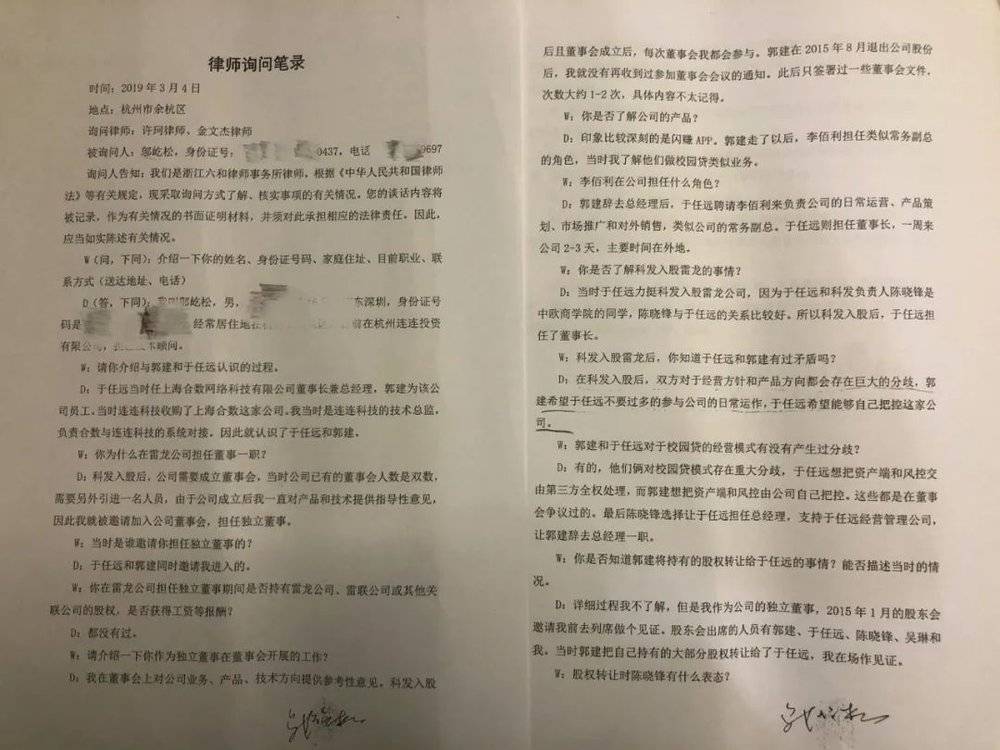 律师询问笔录
时间：2019 年 3 月 4 日
地点：杭州市余杭区
询问律师：许珂律师、金文杰律师
被询问人：邬屹松，身份证号：0437，电话 9697
询问人告知：我们是浙江六和律师事务所律师，根据《中华人民共和国律师
法》等有关规定，现采取询问方式了解、核实事项的有关情况。您的谈话内容将
被记录，作为有关情况的书面证明材料，并须对此承担相应的法律责任。因此，
应当如实陈述有关情况。
W（问，下同）：介绍一下你的姓名、身份证号码、家庭住址、目前职业、联
系方式（送达地址、电话）
D（答，下同）：我叫邬屹松，男，东深圳，身份证号
码是 经常居住地 前在杭州连连投资
有限公司，术顾问。
W：请你介绍与郭建和于任远认识的过程。
D：于任远当时任上海合数网络科技有限公司董事长兼总经理，郭建为该公
司员工。当时连连科技收购了上海合数这家公司。我当时是连连科技的技术总监，
负责合数与连连科技的系统对接。因此就认识了于任远和郭建。
W：你为什么在雷龙公司担任董事一职？
D：科发入股后，公司需要成立董事会，当时公司已有的董事会人数是双数，
需要另外引进一名人员，由于公司成立后我一直对产品和技术提供指导性意见，
因此我就被邀请加入公司董事会，担任独立董事。
W：当时是谁邀请你担任独立董事的？
D：于任远和郭建同时邀请我进入的。
W：你在雷龙公司担任独立董事期间是否持有雷龙公司、雷联公司或其他关
联公司的股权，是否获得工资等报酬？
D：都没有过。
W：请介绍一下你作为独立董事在董事会开展的工作？
D：我在董事会上对公司业务、产品、技术方向提供参考性意见。科发入股
后且董事会成立后，每次董事会我都会参与。郭建在 2015 年 8 月退出公司股份
后，我就没有再收到过参加董事会会议的通知。此后只签署过一些董事会文件，
次数大约 1-2 次，具体内容不太记得。
W：你是否了解公司的产品？
D：印象比较深刻的是闪赚 APP。郭建走了以后，李佰利担任类似常务副总
的角色，当时我了解他们做校园贷类似业务。
W：李佰利在公司担任什么角色？
D：郭建辞去总经理后，于任远聘请李佰利来负责公司的日常运营、产品策
划、市场推广和对外销售，类似公司的常务副总。于任远则担任董事长，一周来
公司 2-3 天，主要时间在外地。
W：你是否了解科发入股雷龙的事情？
D：当时于任远力挺科发入股雷龙公司，因为于任远和科发负责人陈晓锋是
中欧商学院的同学，陈晓锋与于任远的关系比较好。所以科发入股后，于任远担
任了董事长。
W：科发入股雷龙后，你知道于任远和郭建有过矛盾吗？
D：在科发入股后，双方对于经营方针和产品方向都会存在巨大的分歧，郭
建希望于任远不要过多的参与公司的日常运作，于任远希望能够自己把控这家公
司。
W：郭建和于任远对于校园贷的经营模式有没有产生过分歧？
D：有的，他们俩对校园贷模式存在重大分歧，于任远想把资产端和风控交
由第三方全权处理，而郭建想把资产端和风控由公司自己把控。这些都是在董事
会争议过的。最后陈晓锋选择让于任远担任总经理，支持于任远经营管理公司，
让郭建辞去总经理一职。
W：你是否知道郭建将持有的股权转让给于任远的事情？能否描述当时的情
况。
D：详细过程我不了解，但是我作为公司的独立董事，2015 年 1 月的股东会
邀请我前去列席做个见证。股东会出席的人员有郭建、于任远、陈晓锋、吴琳和
我。当时郭建把自己持有的大部分股权转让给了于任远，我在场作见证。
W：股权转让时陈晓锋有什么表态？